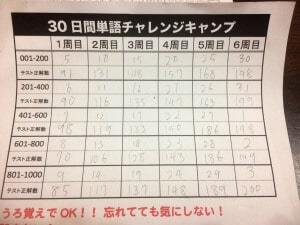 30日間単語チャレンジキャンプ
1周目 2周目 3周目 4周目 5周目 6周目
001-200 5 10 15 20 25 30
テスト正解数 91 131 157 168 198
201-400 6 11 16 21 26
テスト正解数 90 116 135 197
401-600 7 12
テスト正解数 98 119 133 186 198
601-800 8 13 18 23 28 2
テスト正解数 70 106 128 143 186 199
801-1000 9 14 19 24 29 3
テスト正解数 85 117 137 148 189 200
うろ覚えでOK!! 忘れてても気にしない!